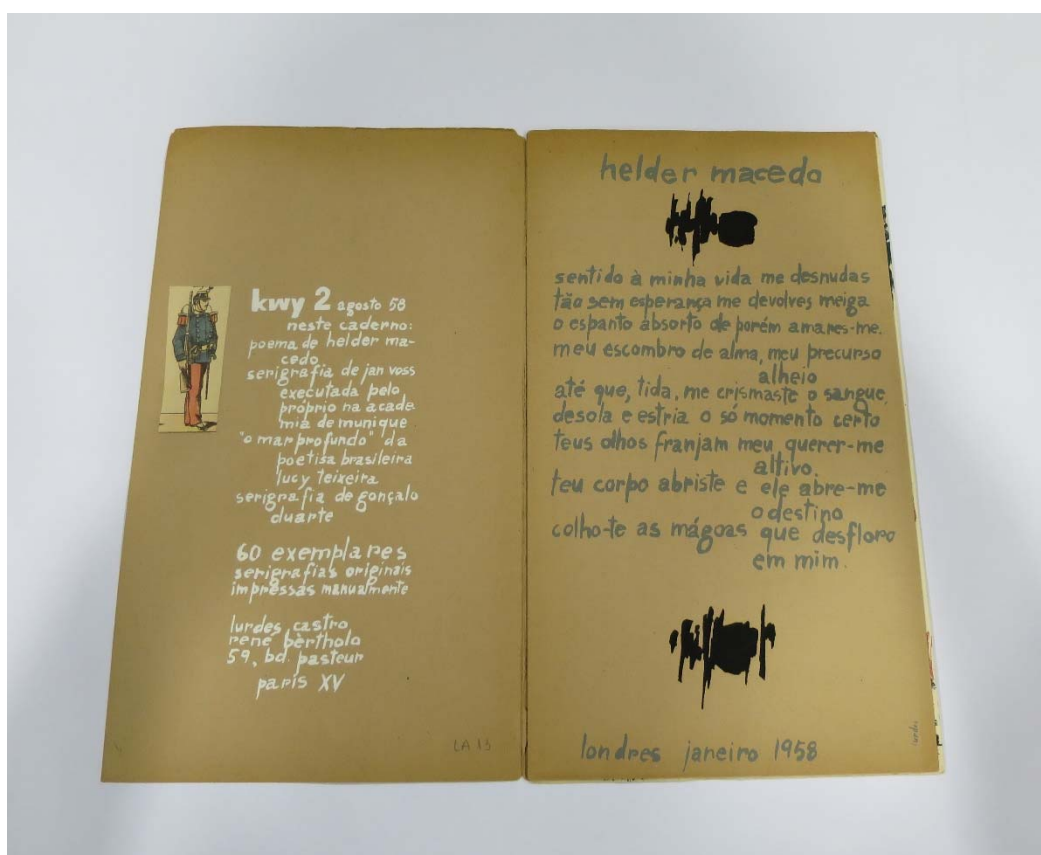 kwy 2 agosto 58
neste caderno:
poema de helder ma-
cedo
serigrafia de jan voss
executada pelo
próprio na acade
mia de munique
"o mar profundo" da
poetisa brasileira
lucy teixeira
serigrafia de gonçalo
duarte
60 exemplares
serigrafias originais
impressas manualmente
lurdes castro
rené bèrtholo
59, bd. pasteur
paris XV
LA 13
helder macedo
sentido à minha vida me desnudas
tão sem esperança me devolves meiga
o espanto absorto de porém amares-me.
meu escombro de alma, meu precurso
alheio
até que, tida, me crismaste o sangue,
desola e estria o só momento certo
teus olhos franjam meu querer-me
altivo.
teu corpo abriste e ele abre-me
o destino
colho-te as mágoas que desfloro
em mim.
londres janeiro 1958